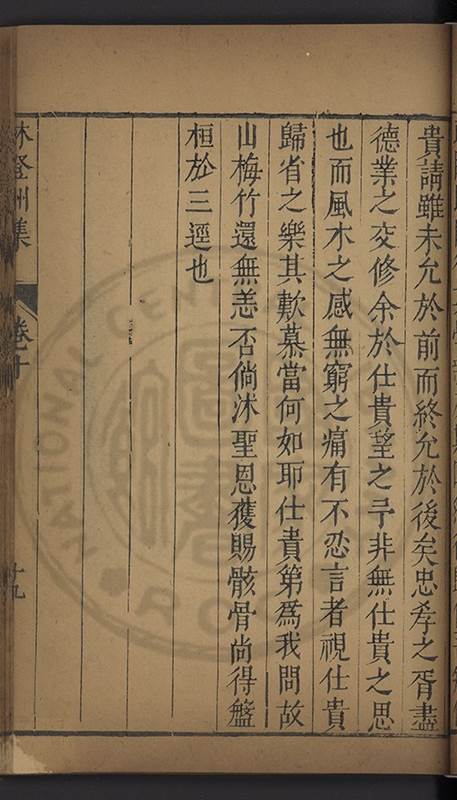 貴請雖未允於前而終允於後矣忠孝之胥盡
德業之交修余於仕貴望之予非無仕貴之思
也而風木之感無窮之痛有不忍言者視仕貴
歸省之樂其歎慕當何如耶仕貴第為我問故
山梅竹還無恙否倘沐聖恩獲賜骸骨尚得盤
桓於三逕也
林登州集
卷十
十九